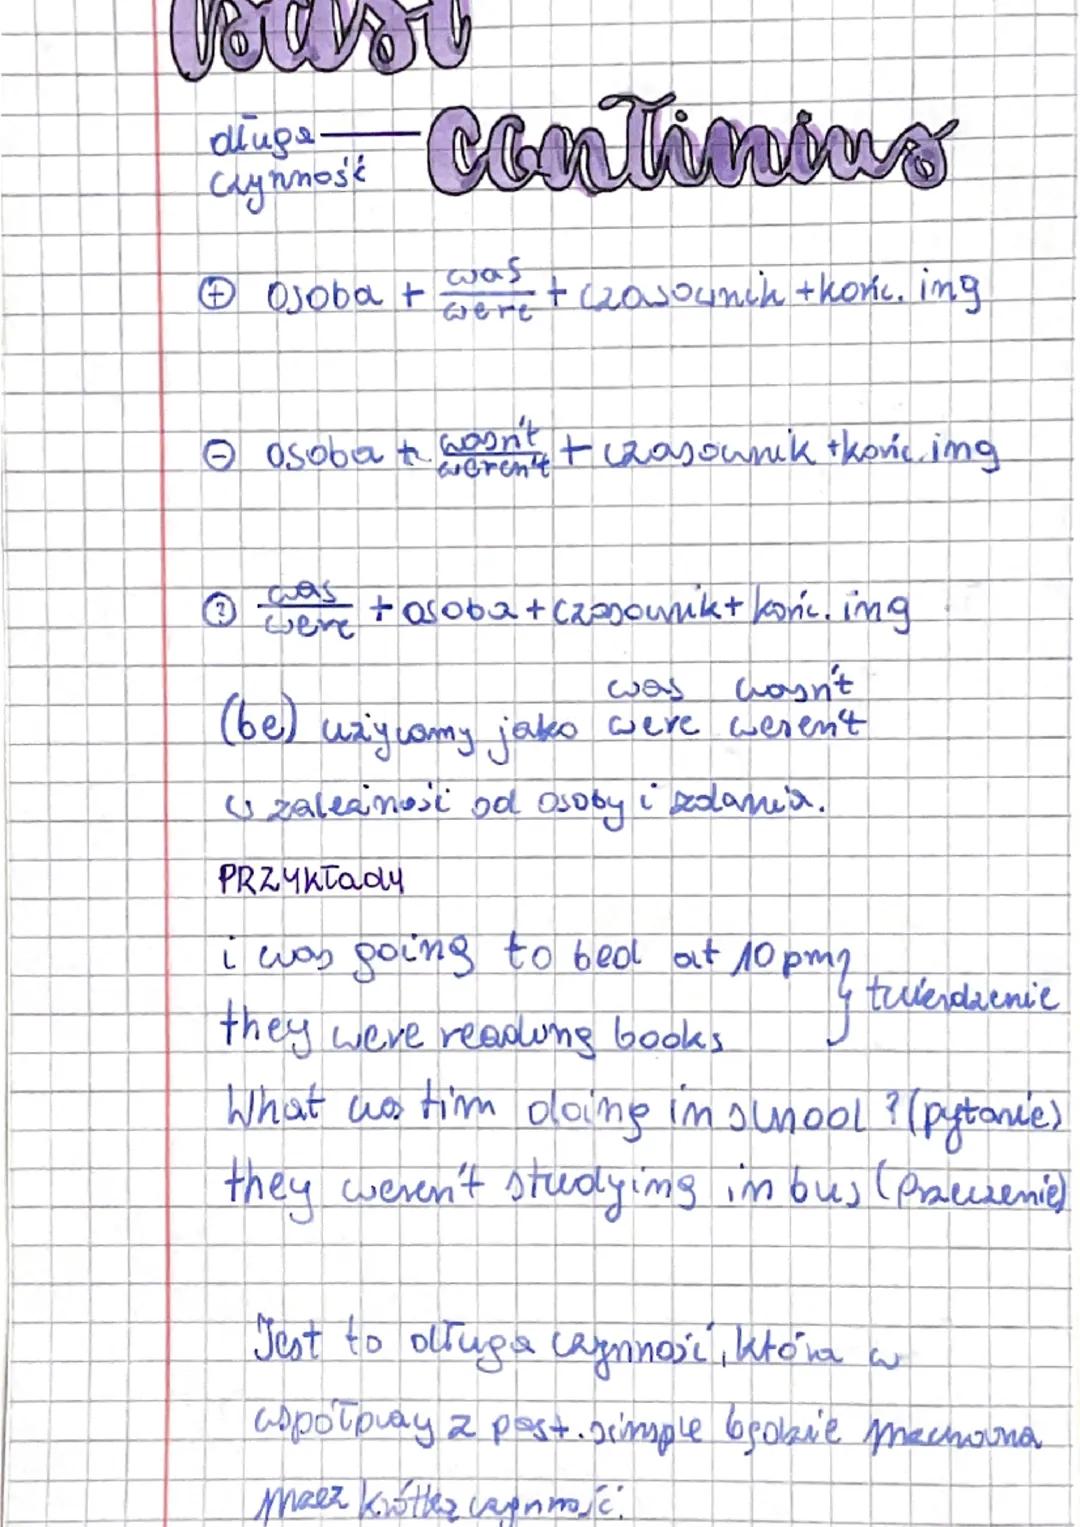 Past
długa czynność — Continius
+ osoba + was/were + czasownik + końc. ing
- osoba + wasn't/weren't + czasownik + końc. ing
? was/were + osoba + czasownik + końc. ing
was wasn't
(be) używamy jako were weren't
w zależności od osoby i zdania.
PRZYKŁady
i was going to bed at 10 pm
they were reading books } twierdzenie
What was tim doing in school? (pytanie)
they weren't studying in bus (przeczenie)
Jest to długa czynność, która w
współpracy z past. simple będzie przerwana
przez krótką czynność.